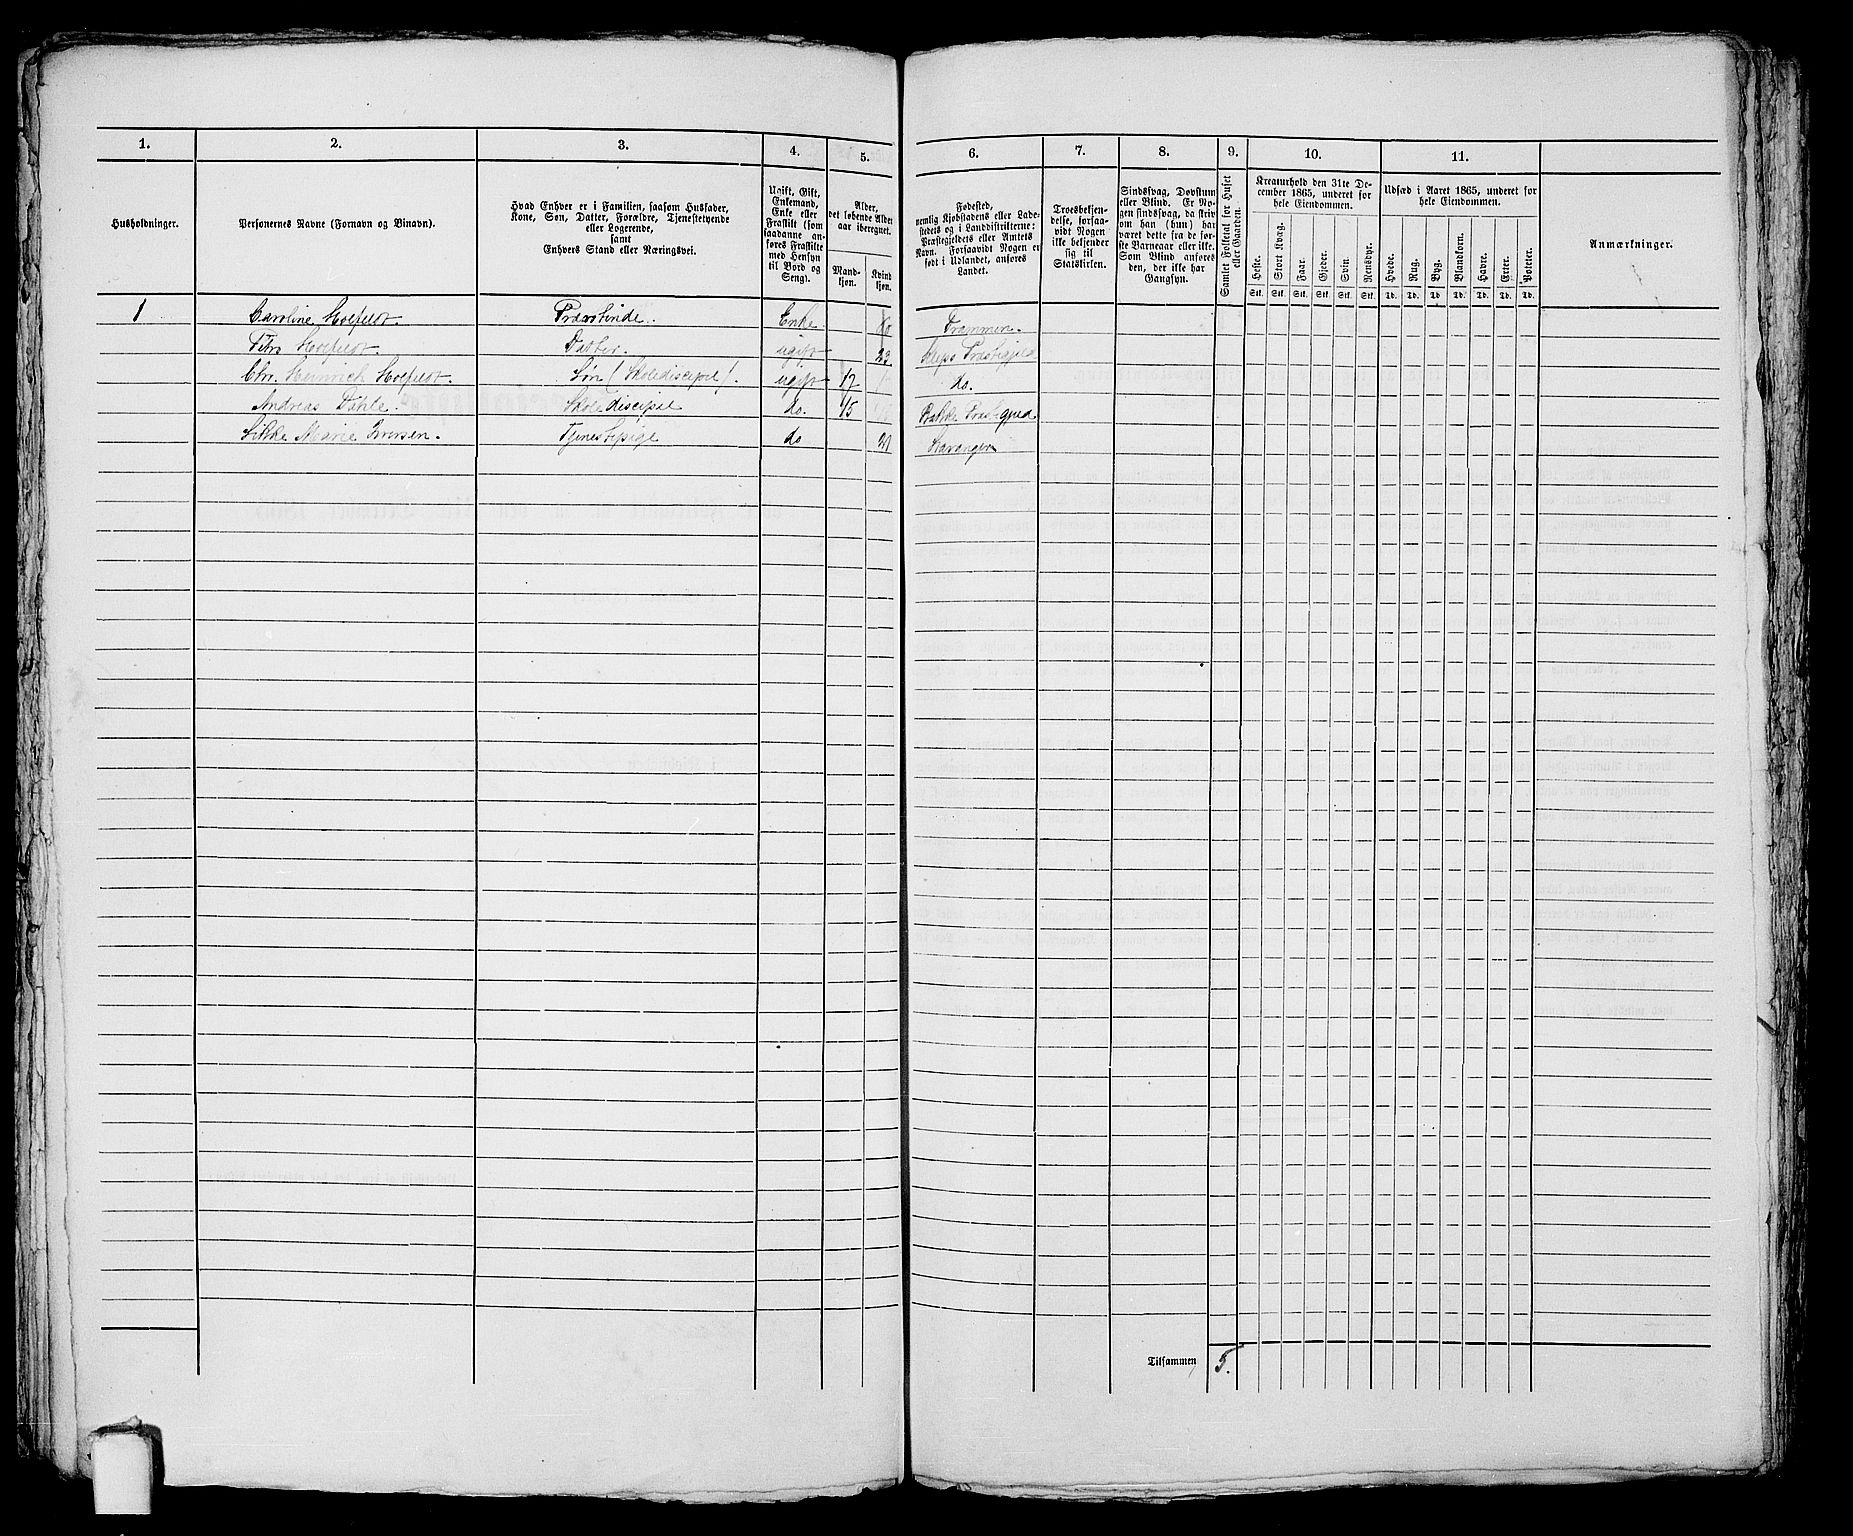 1. 2. 3. 4. 5. 6. 7. 8. 9. 10. 11.
Husholdninger.
Personernes Navne (Fornavn og Binavn).
Hvad Enhver er i Familien, saasom Husfader,
Kone, Søn, Datter, Forældre, Tjenestetyende
eller Logerende,
samt
Enhvers Stand eller Næringsvei.
Ugift, Gift,
Enkemand,
Enke eller
Fraskilt (som
saadanne an-
føres Fraskilte
med Hensyn
til Bord og
Seng).
Alder,
det løbende Alder
aar iberegnet.
Mand-
kjøn.
Kvind
kjøn.
Fødested,
nemlig Kjøbstadens eller Lade-
stedets og i Landdistrikterne:
Præstegjeldets eller Amtets
Navn. Forsaavidt Nogen er
født i Udlandet, anføres
Landet.
Troesbekjen-
delse, forsaa-
vidt Nogen
ikke bekjender
sig til
Statskirken.
Sindssvag, Døvstum
eller Blind. Er No-
gen sindssvag, da skriv
om han (hun) har
været dette fra de før-
ste Barneaar eller ikke.
Som Blind anføres
den, der ikke har
Gangsyn.
Samlet Folketal for Huset
eller Gaarden.
Kreaturhold den 31te De-
cember 1865, underet for
hele Eiendommen.
Heste. Stort Kvæg. Faar. Gjeder. Svin. Rensdyr.
Stk. Stk. Stk. Stk. Stk. Stk.
Udsæd i Aaret 1865, underet for
hele Eiendommen.
Hvede. Rug. Byg. Blandkorn. Havre. Erter. Poteter.
Td. Td. Td. Td. Td. Td. Td.
Anmærkninger.
1 Caroline Holfeldt. Provstinde. Enke Drammen.
Holfeldt. Datter. ugift 23 Kleps Præstegjeld
Chr. Heinrich Holfeldt. Søn (Skolediscipel). ugift 17 do.
Andreas Dahle. Skolediscipel do. 15
Marie Iversen. Tjenestepige do Stavanger
Tilsammen 5.